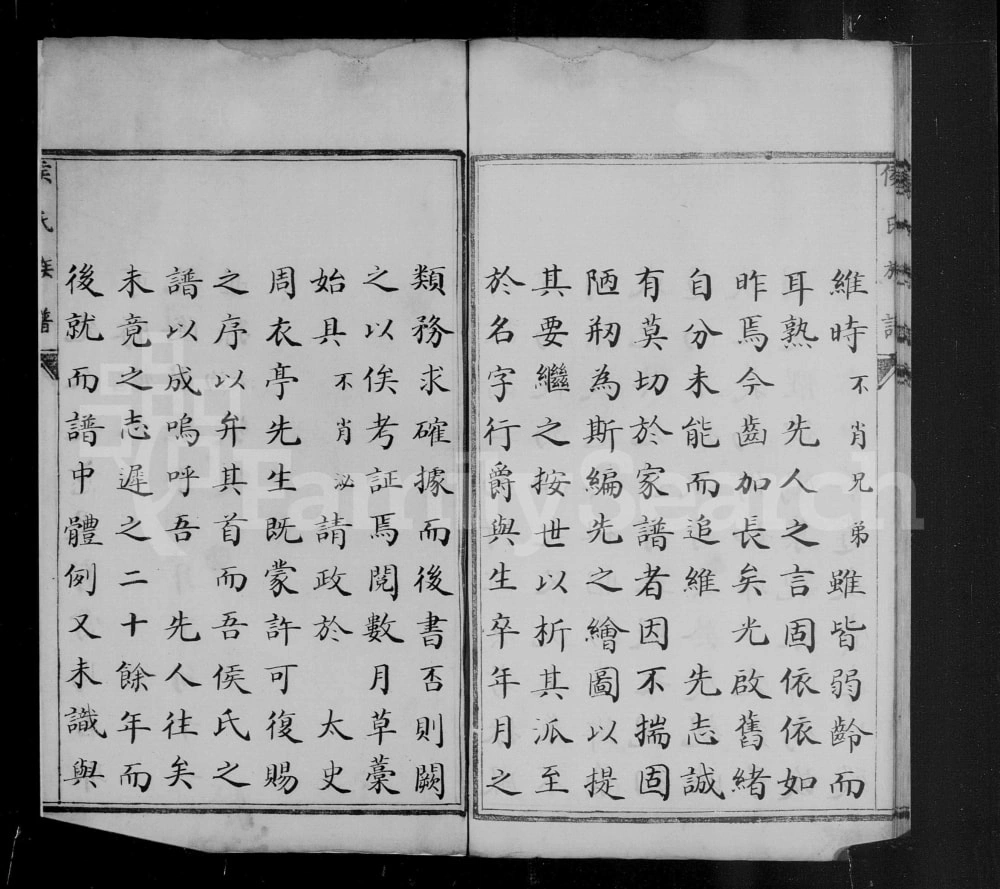 維時不肖兄弟雖皆弱齡而
耳熟先人之言固依依如
昨焉今齒加長矣光啟舊緒
自分未能而追維先志誠
有莫切於家譜者因不揣固
陋刱為斯編先之繪圖以提
其要繼之按世以析其派至
於名字行爵與生卒年月之
類務求確據而後書否則闕
之以俟考証焉閱數月草藁
始具不肖泌請政於太史
周衣亭先生既蒙許可復賜
之序以弁其首而吾侯氏之
譜以成嗚呼吾先人往矣
未竟之志遲之二十餘年而
後就而譜中體例又未識與
氏族譜
FamilySearch